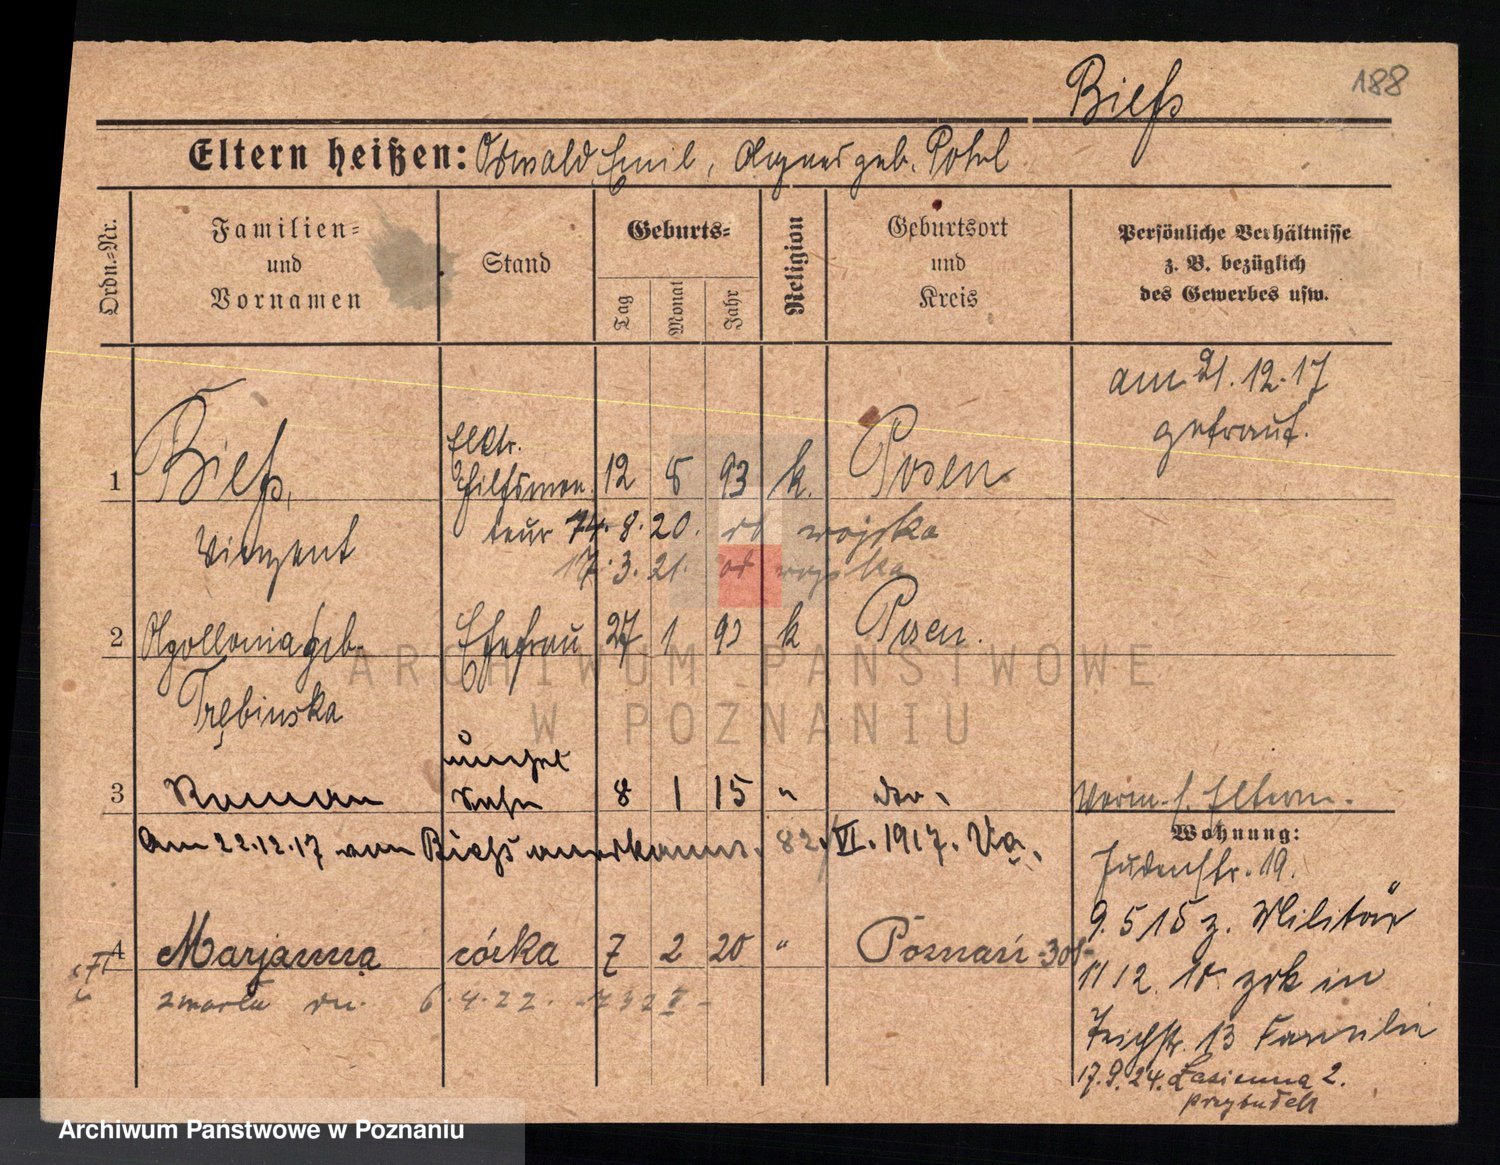 188
Biefs
Eltern heißen: Oswald Emil, Agnes geb. Pohl
Ordn.-Nr.
Familien-
und
Vornamen
Stand
Geburts-
Tag
Monat
Jahr
Religion
Geburtsort
und
Kreis
Persönliche Verhältnisse
z. B. bezüglich
des Gewerbes usw.
am 21.12.17
getraut.
Elektr.
1 Biefs, Hilfsmon. 12 5 93 k. Posen
Vinzent teur 14.8.20. do wojska
17.3.21. od wojska
2 Apollonia geb. Ehefrau 27 1 93 k Posen.
Trębinska
unehel
3 Roman Sohn 8 1 15 " do. Verm. b. Eltern.
Am 22.12.17 von Biefs anerkannt. 82/VI. 1917.
Wohnung:
Judenstr. 19.
9.5 15 z. Militär
4 Marjanna córka 7 2 20 " Poznań
11 12. 18 zrk in
zmarła dn. 6.4.22.
Teichstr. 13 Familie
17.9.24. Łasienna 2.
ARCHIWUM PAŃSTWOWE
W POZNANIU
Archiwum Państwowe w Poznaniu